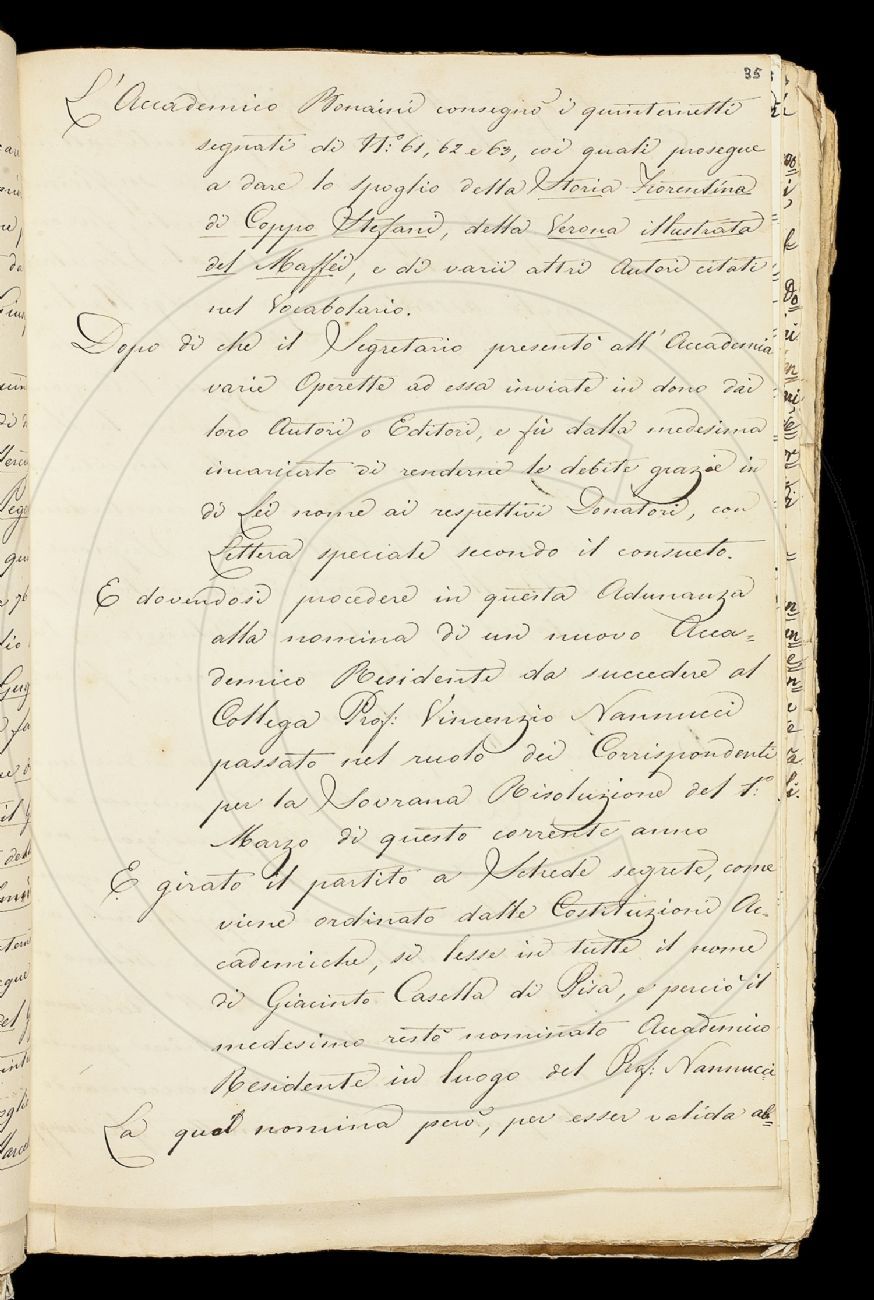 35
L'Accademico Bonaini consegnò i quinternetti
segnati di N.° 61, 62 e 63, coi quali prosegue
a dare lo spoglio della Storia Fiorentina
di Coppo Stefani, della Verona illustrata
del Maffei, e di varii altri Autori citati
nel Vocabolario.
Dopo di che il Segretario presentò all'Accademia
varie Operette ad essa inviate in dono dai
loro Autori o Editori, e fù dalla medesima
incaricato di renderne le debite grazie in
di Lei nome ai respettivi Donatori, con
Lettera speciale secondo il consueto.
E dovendosi procedere in questa Adunanza
alla nomina di un nuovo Acca=
demico Residente da succedere al
Collega Prof: Vincenzio Nannucci
passato nel ruolo dei Corrispondenti
per la Sovrana Risoluzione del 1:°
Marzo di questo corrente anno
E girato il partito a Schede segrete, come
viene ordinato dalle Costituzioni Ac=
cademiche, si lesse in tutte il nome
di Giacinto Casella di Pisa, e perciò il
medesimo restò nominato Accademico
Residente in luogo del Prof: Nannucci
La qual nomina però, per esser valida ab=